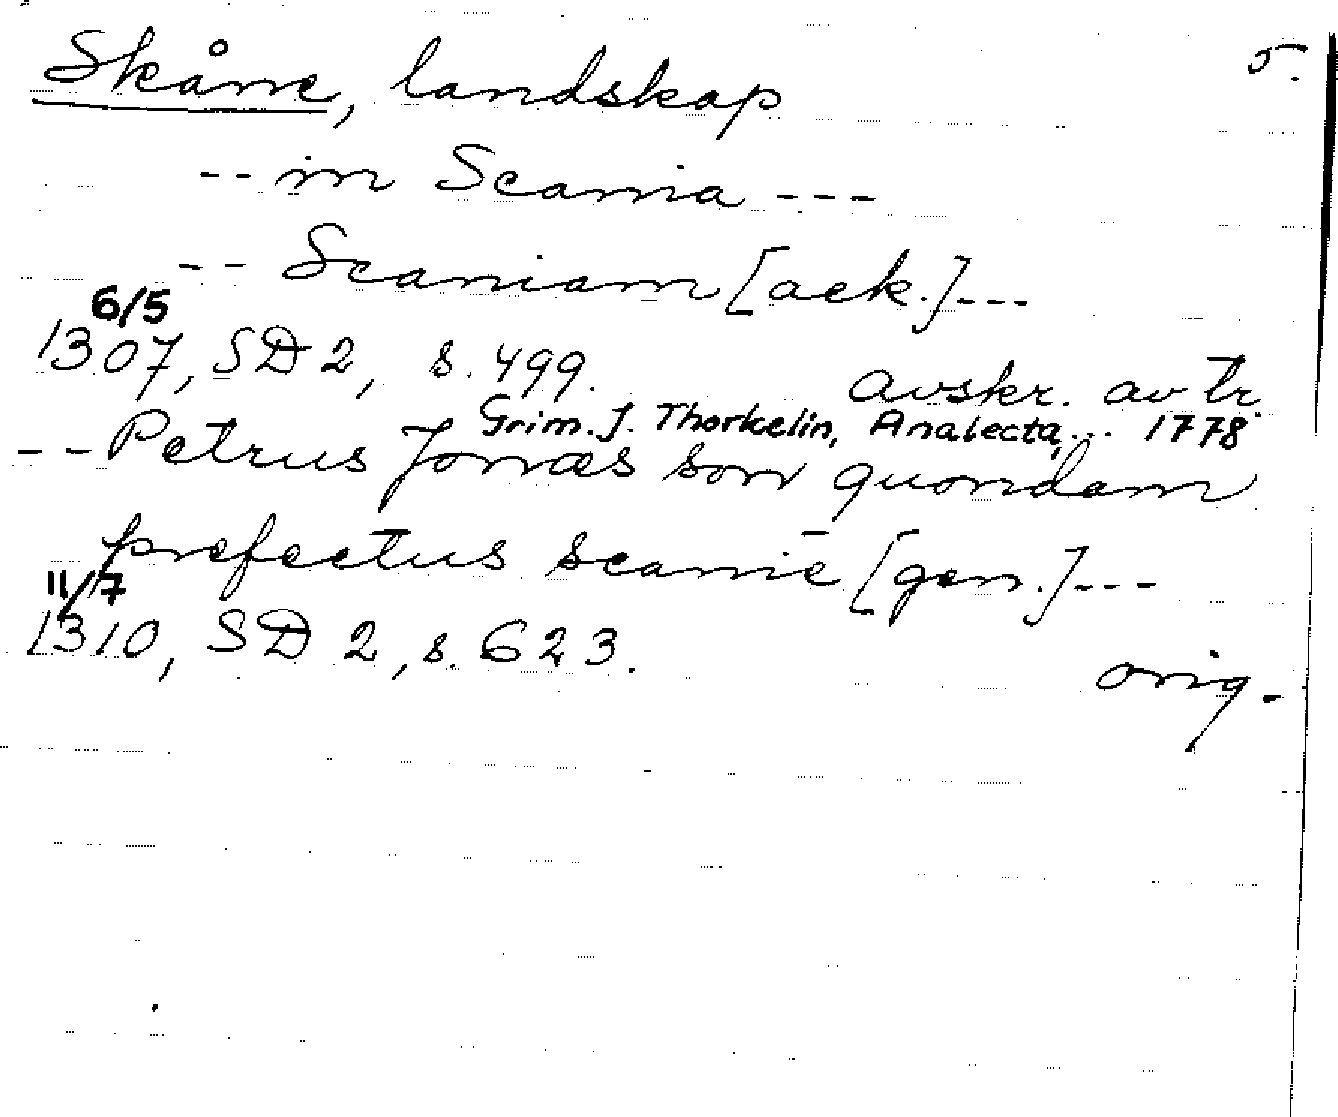 Skåne, landskap 5.
-- in Scania ---
-- Scaniam [ack.]---
6/5
1307, SD 2, s. 499. avskr. av tr.
Grim. J. Thorkelin, Analecta, ... 1778
-- Petrus Jonæs son quondam
prefectus scanie [gen.]---
11/7
1310, SD 2, s. 623. orig.